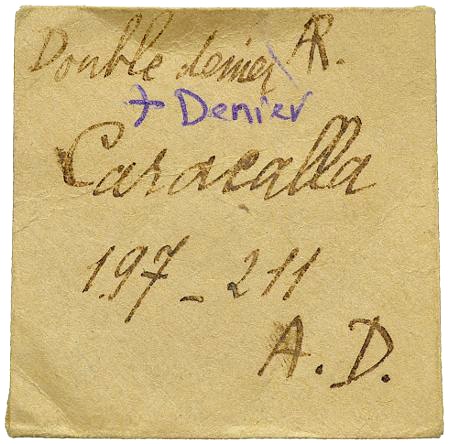 Double denier AR.
+ Denier
Caracalla
197 - 211
A. D.